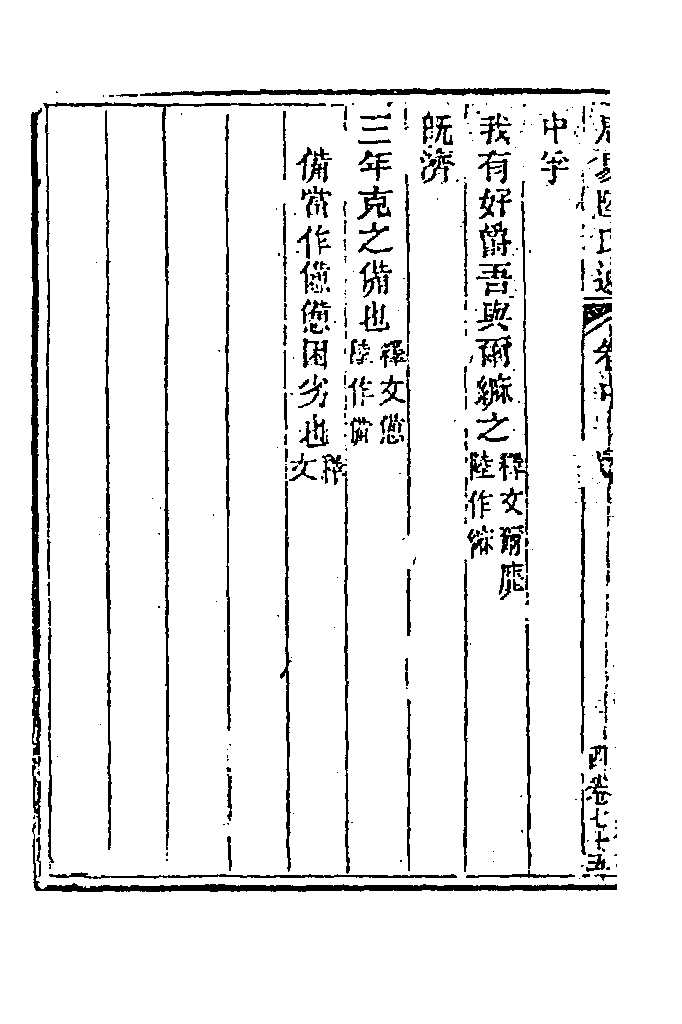 中孚
我有好爵吾與爾縻之釋文爾靡陸作縻
既濟
三年克之備也釋文憊陸作備
備當作憊憊困劣也釋文
卷七十五